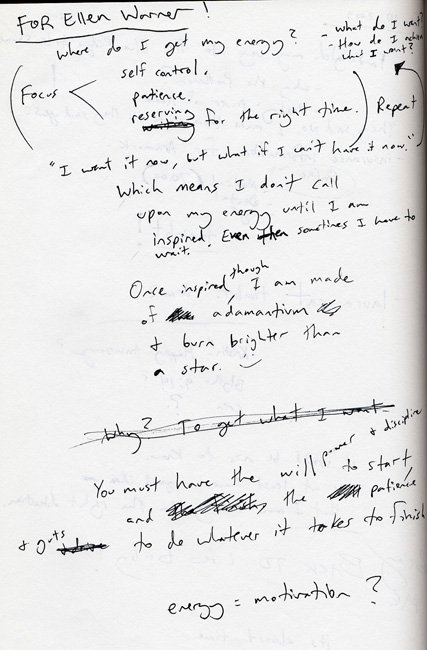 FOR Ellen Warner!
where do I get my energy?
- what do I want?
- How do I
what I want?
Focus
self control,
patience.
reserving
for the right time.
Repeat
"I want it now, but what if I can't have it now."
Which means I don't call
upon my energy until I am
inspired. Even then sometimes I have to
wait.
Once inspired though, I am made
of adamantium
+ burn brighter than
a star. :)
Why? To get what I want
You must have the will power + discipline to start
and the patience
+ guts to do whatever it takes to finish
energy = motivation?